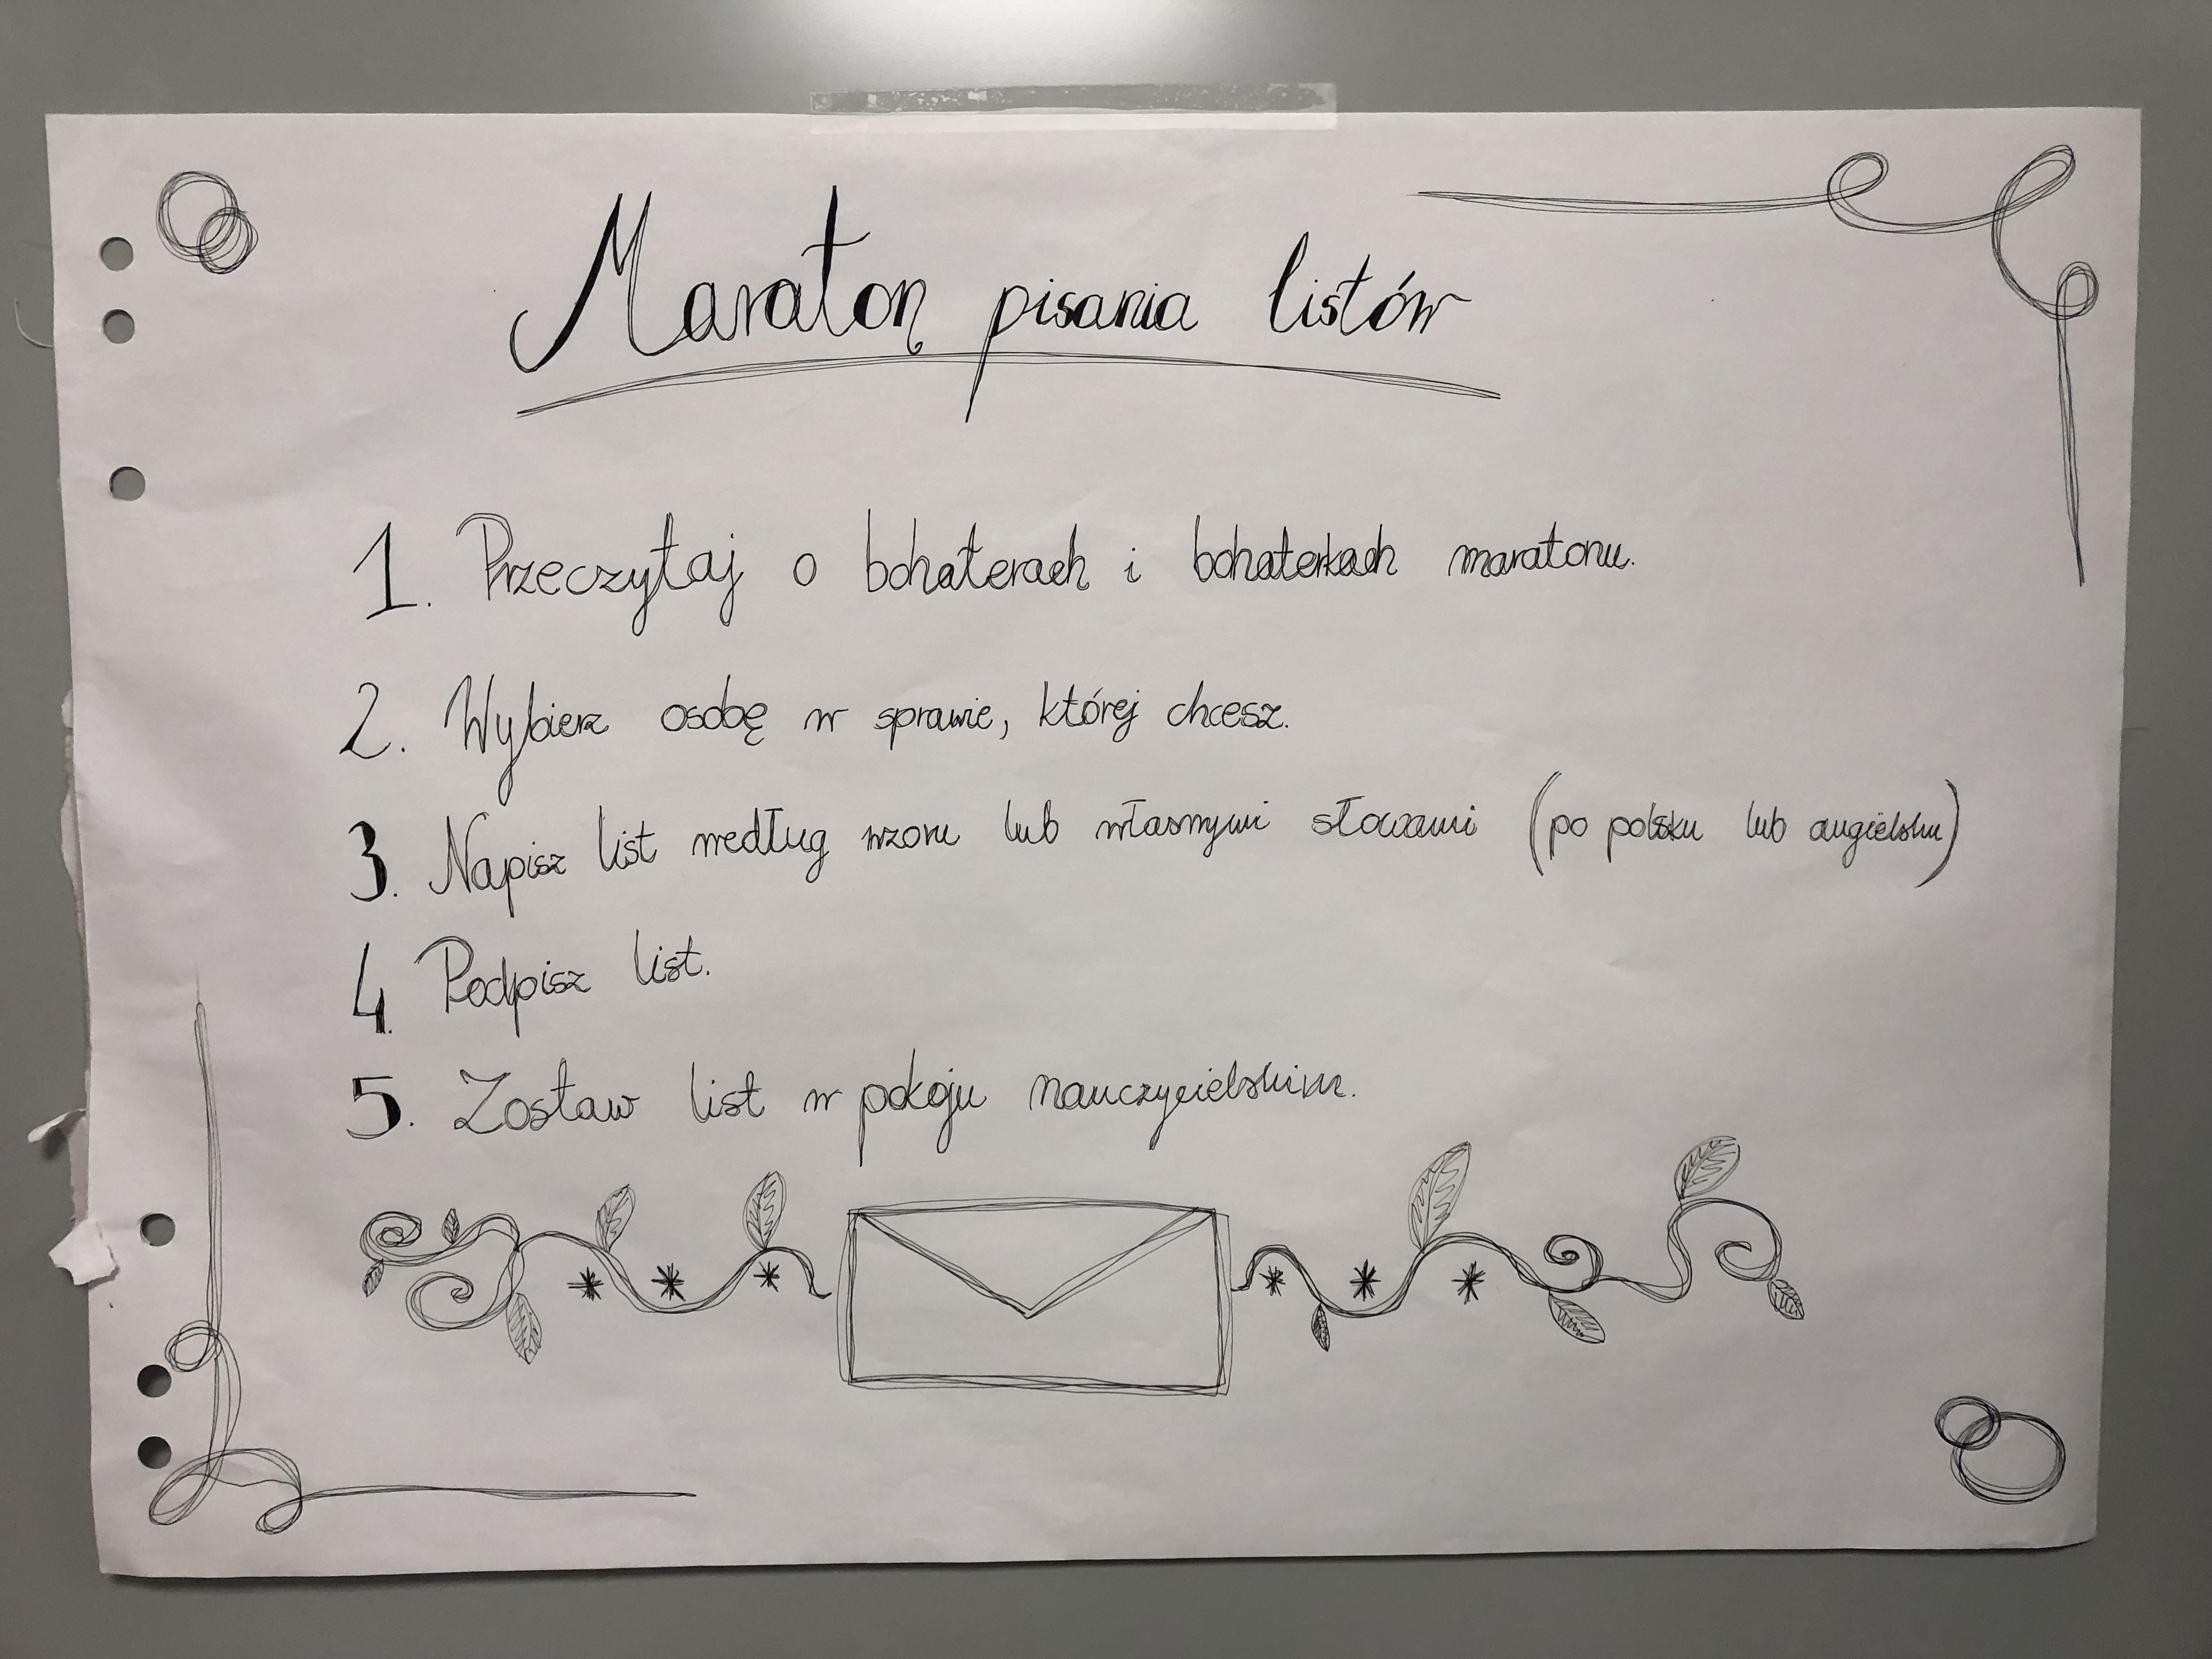 Maraton pisania listów
1. Przeczytaj o bohaterach i bohaterkach maratonu.
2. Wybierz osobę w sprawie, której chcesz.
3. Napisz list według wzoru lub własnymi słowami (po polsku lub angielsku)
4. Podpisz list.
5. Zostaw list w pokoju nauczycielskim.